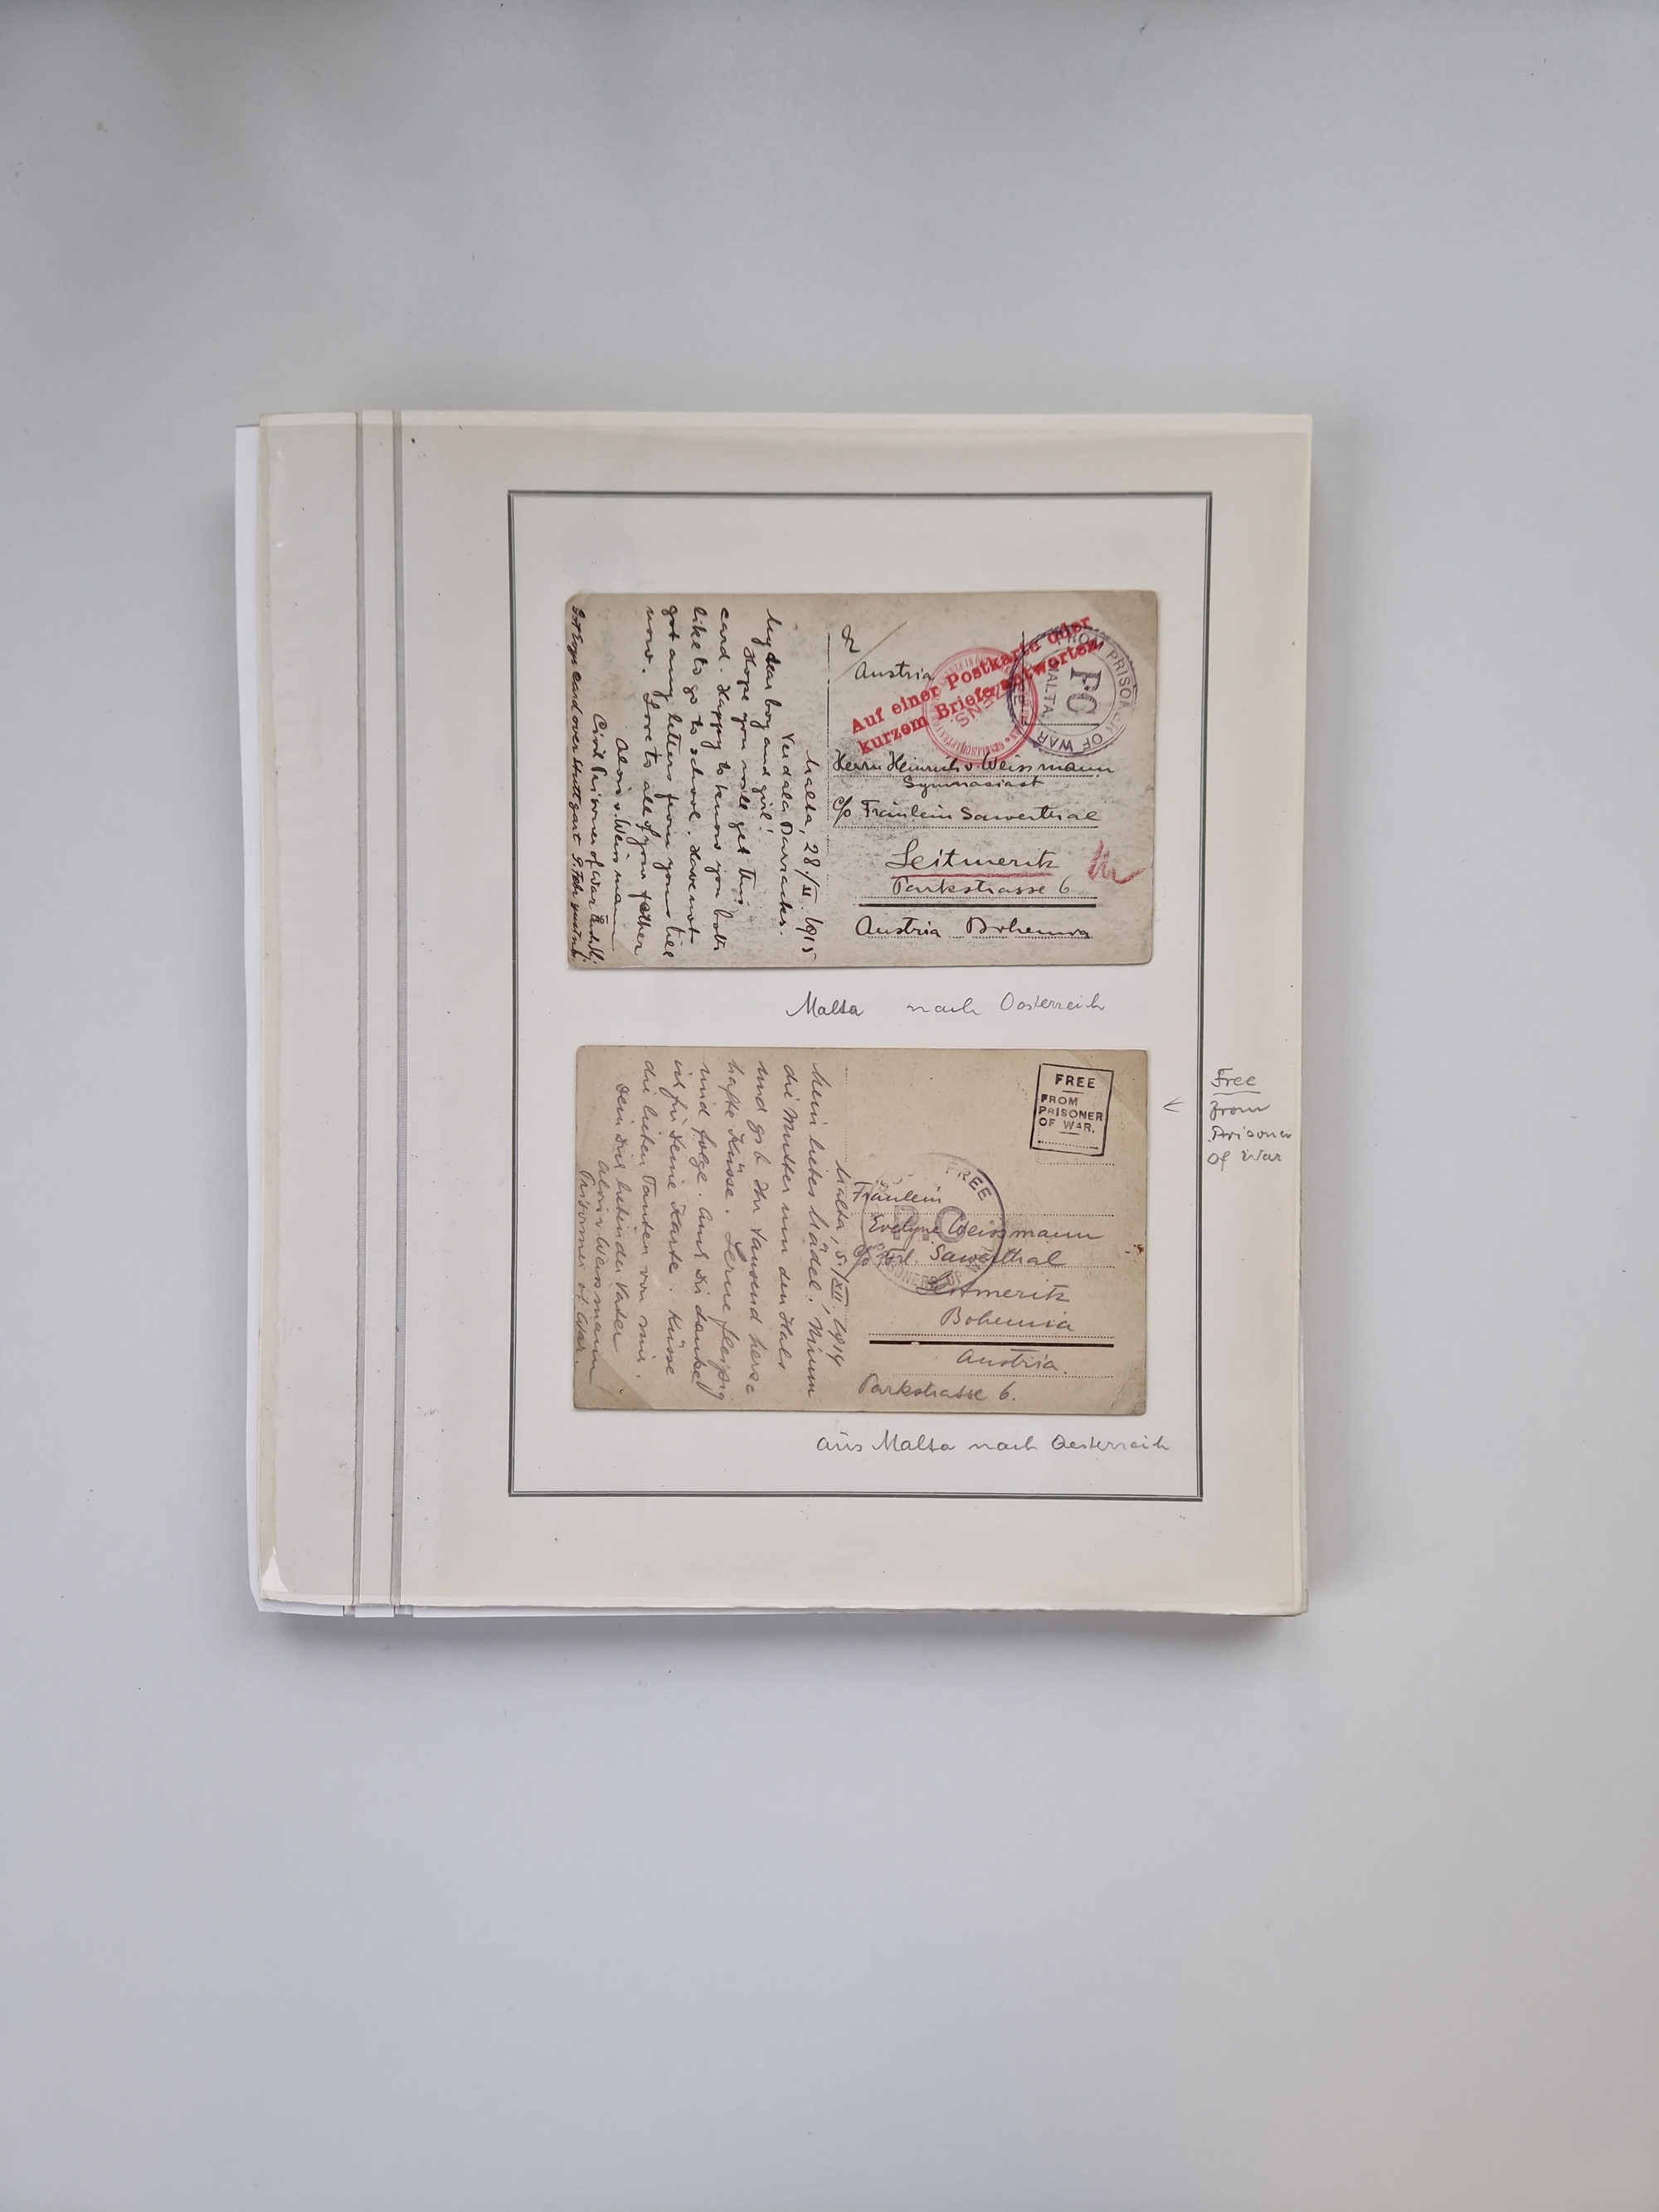 Malta, 28./II. 1915
Verdala Barracks.
My dear boy and girl!
Hope you will get this
card. Happy to know you both
like to go to school. Have not
got any letters from yours till
now. Love to all of you father
Alois v. Weissmann
Civil Prisoner of War
Got boys card over Stuttgart 9. Feb.
Austria
Auf einer Postkarte oder
kurzem Briefe antworten.
FROM PRISONER OF WAR
PC
MALTA.
Herrn Heinrich v. Weissmann
Gymnasiast
c/o Fräulein Sawerthal
Leitmeritz
Parkstrasse 6
Austria Bohemia
Malta nach Oesterreich
Malta, 5./XII. 1914
Mein liebes Mädel! Nimm
die Mutter um den Hals
und gib ihr tausend herz
hafte Küsse. Lerne fleissig
und folge. Auch Dir danke
ich für Deine Karte. Küsse
die lieben Tanten von mir.
Dein Dich liebender Vater
Alois v. Weissmann
Prisoner of War.
FREE
FROM
PRISONER
OF WAR.
FREE
P.C.
PRISONERS OF
Fräulein
Evelyne Weissmann
c/o Frl. Sawerthal
Leitmeritz
Bohemia
Austria.
Parkstrasse 6.
Free
From
Prisoner
Of War
aus Malta nach Oesterreich